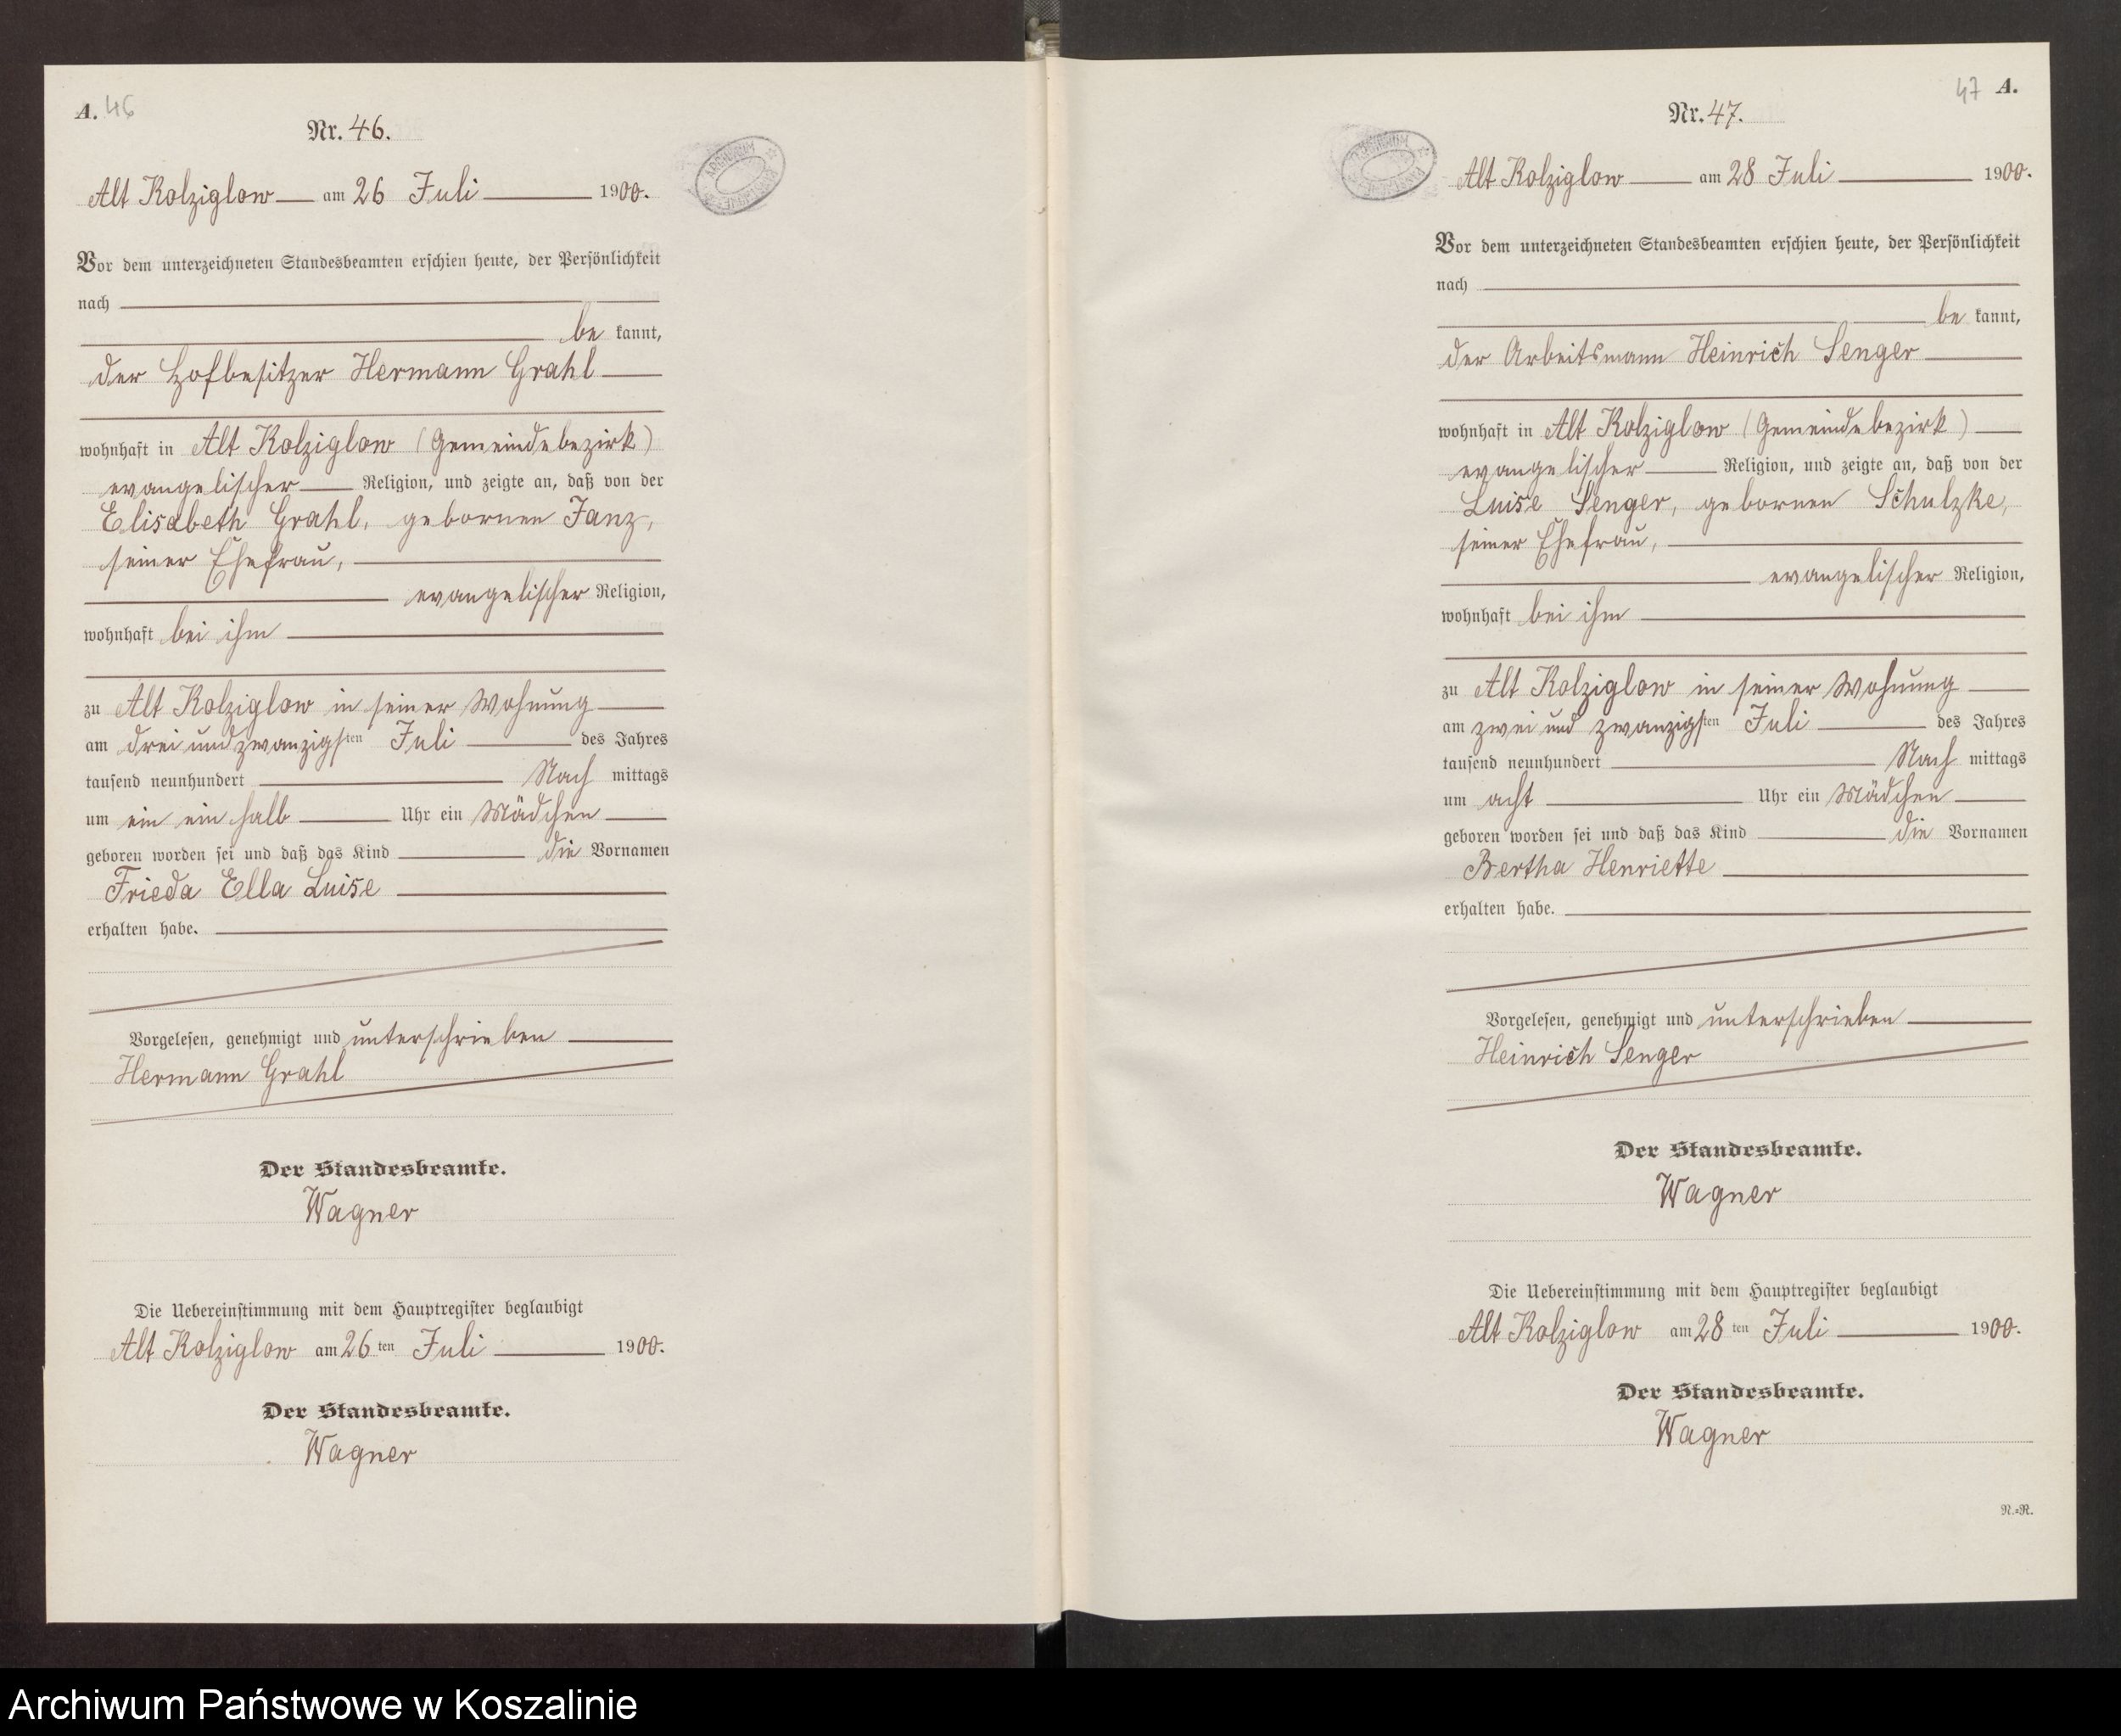 A. 46
Nr. 46.
Alt Kolziglow am 26 Juli 1900.
Vor dem unterzeichneten Standesbeamten erschien heute, der Persönlichkeit
nach
be kannt,
der Hofbesitzer Hermann Grahl
wohnhaft in Alt Kolziglow (Gemeindebezirk)
evangelischer Religion, und zeigte an, daß von der
Elisabeth Grahl, gebornen Janz,
seiner Ehefrau,
evangelischer Religion,
wohnhaft bei ihm
zu Alt Kolziglow in seiner Wohnung
am drei und zwanzigsten Juli des Jahres
tausend neunhundert Nach mittags
um ein ein halb Uhr ein Mädchen
geboren worden sei und daß das Kind die Vornamen
Frieda Ella Luise
erhalten habe.
Vorgelesen, genehmigt und unterschrieben
Hermann Grahl
Der Standesbeamte.
Wagner
Die Uebereinstimmung mit dem Hauptregister beglaubigt
Alt Kolziglow am 26ten Juli 1900.
Der Standesbeamte.
Wagner
47 A.
Nr. 47.
Alt Kolziglow am 28 Juli 1900.
Vor dem unterzeichneten Standesbeamten erschien heute, der Persönlichkeit
nach
be kannt,
der Arbeitsmann Heinrich Senger
wohnhaft in Alt Kolziglow (Gemeindebezirk)
evangelischer Religion, und zeigte an, daß von der
Luise Senger, gebornen Schulzke,
seiner Ehefrau,
evangelischer Religion,
wohnhaft bei ihm
zu Alt Kolziglow in seiner Wohnung
am zwei und zwanzigsten Juli des Jahres
tausend neunhundert Nach mittags
um acht Uhr ein Mädchen
geboren worden sei und daß das Kind die Vornamen
Bertha Henriette
erhalten habe.
Vorgelesen, genehmigt und unterschrieben
Heinrich Senger
Der Standesbeamte.
Wagner
Die Uebereinstimmung mit dem Hauptregister beglaubigt
Alt Kolziglow am 28ten Juli 1900.
Der Standesbeamte.
Wagner
N.=R.
Archiwum Państwowe w Koszalinie